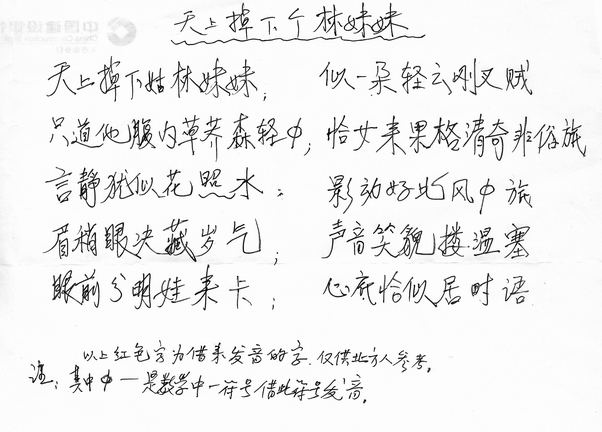 天上掉下个林妹妹
天上掉下姑林妹妹; 似一朵轻云刚叉贼
只道他腹内草荞森轻中; 恰女来果格清奇非俗旅
言静犹似花照水; 影动好比风中旅
眉稍眼决藏岁气; 声音笑貌搂温塞
眼前分明娃来卡; 心底恰似居时语
以上红色字为借来发音的字.仅供北方人参考。
注:其中φ一是数学中一符号借此符号发音。